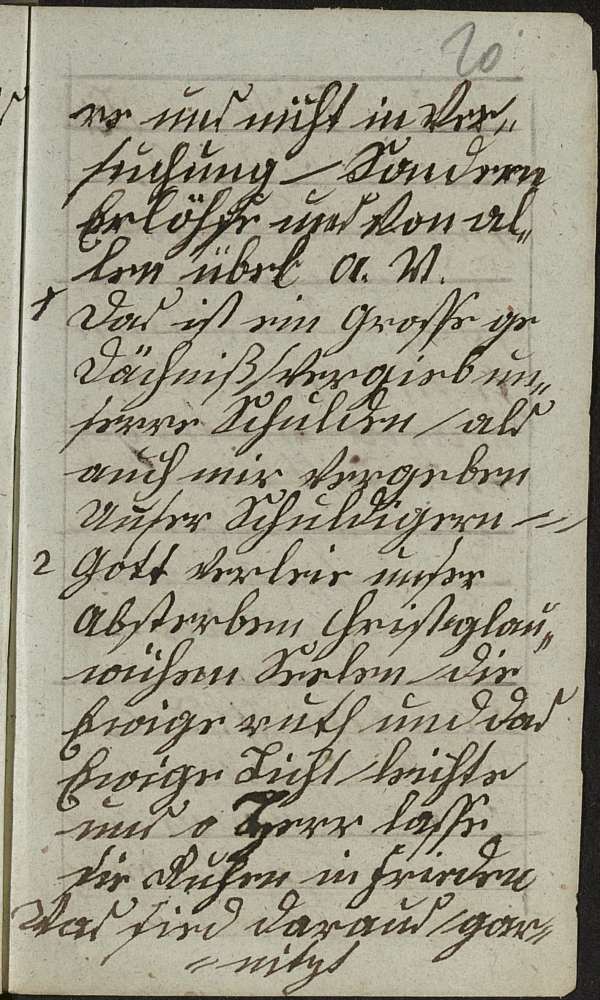 20
re uns nicht in Ver„
suchung – Sondern
Erlöhse uns von al„
len übel A. M.
x Das ist ein Grosse ge
Dächniß / vergieb un„
serre Schulden / als
auch mir vergeben
Unser Schuldigern –
2 Gott verleie unser
Absterben Christglau„
wihen Seelen die
Ewige ruth und das
Ewige Licht leichte
uns o Herr lasse
sie Ruhen in frieden
Was sied daraus / gar„
nitzt